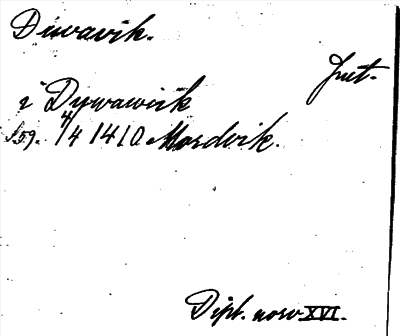 Duvavik.
Jmt.
i Dywawiik
s. 59. 4/4 1410 Mordvik.
Dipl. norv. XVI.